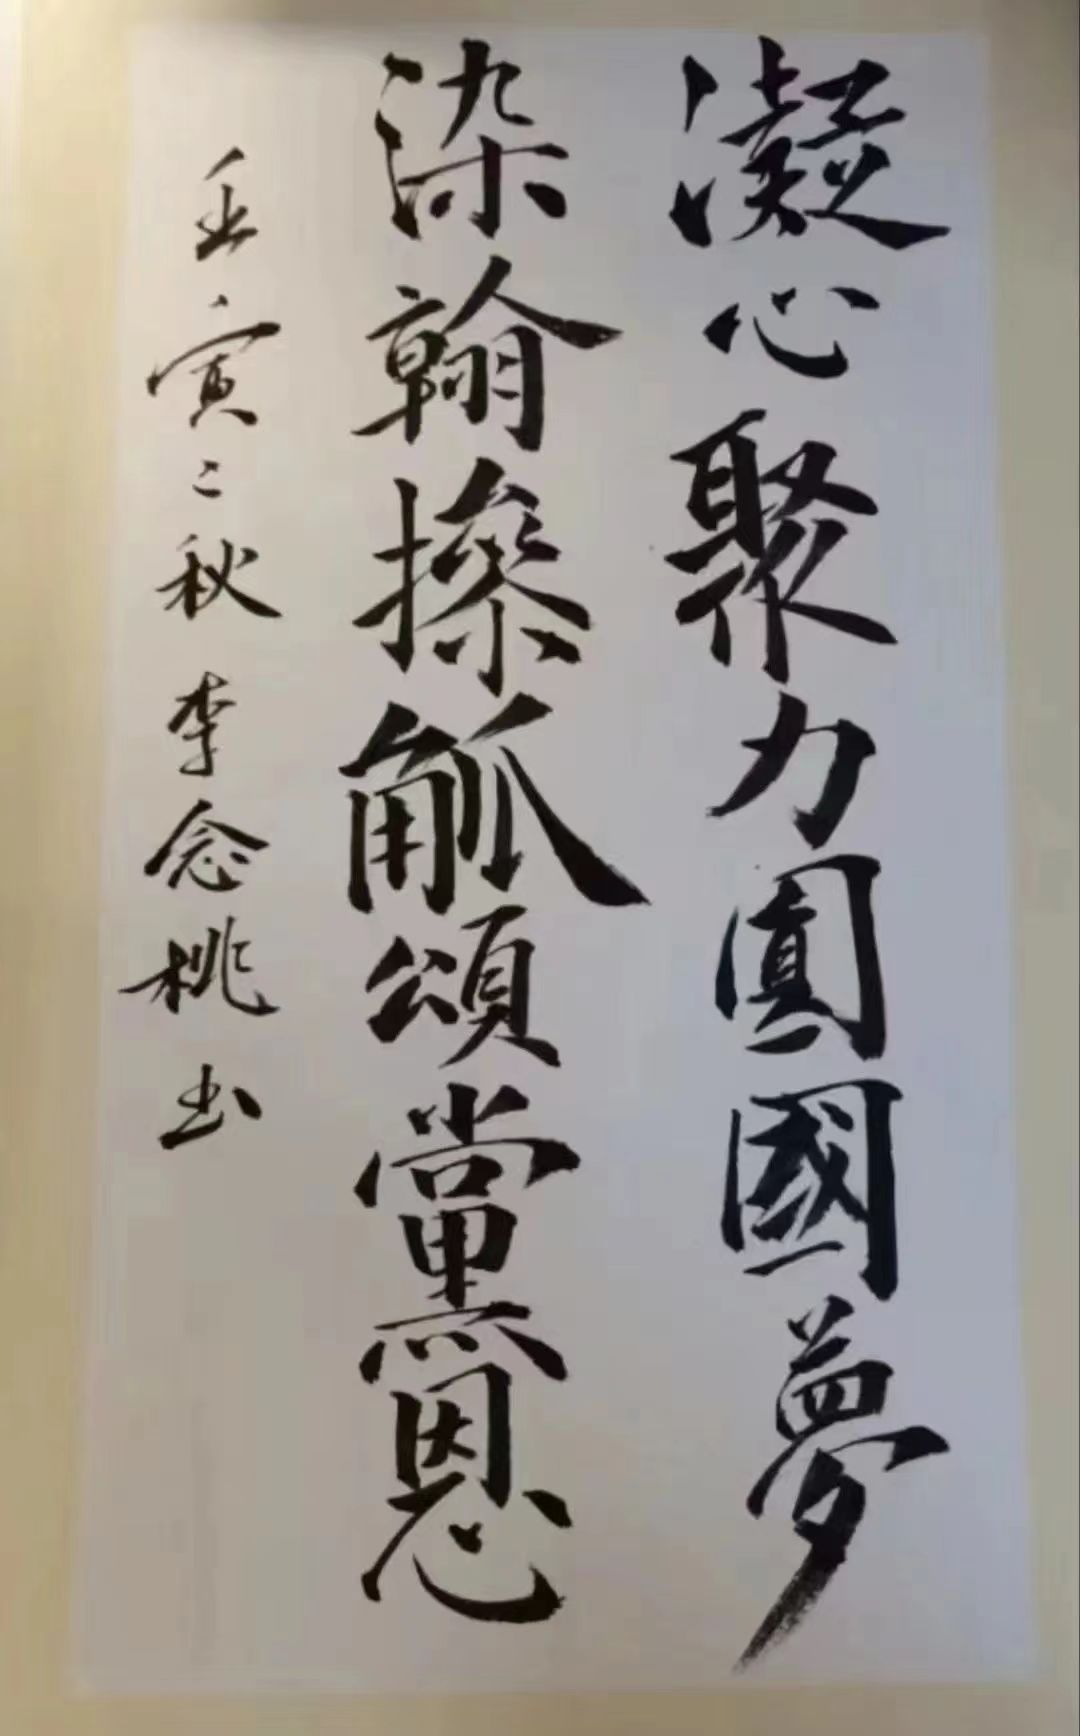 凝心聚力圓國夢
染翰操觚頌黨恩
壬寅之秋李念桃书